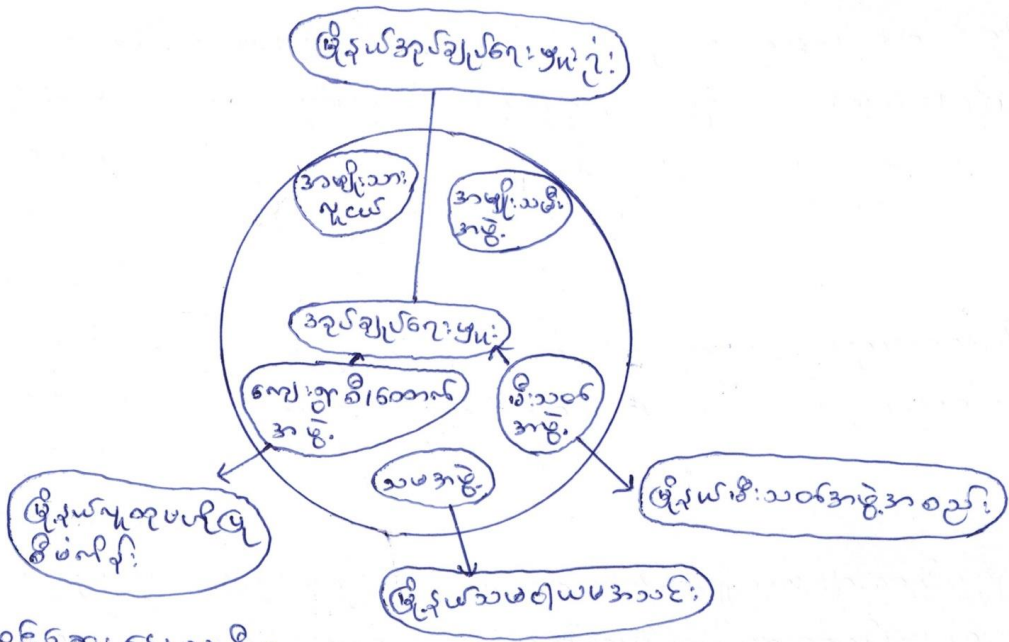 မြို့နယ်အုပ်ချုပ်ရေးမှူးရုံး
အမျိုးသား
လူငယ်
အမျိုးသမီး
အဖွဲ့
အုပ်ချုပ်ရေးမှူး
ကျေးရွာစီ/ထောက်
အဖွဲ့
မီးသတ်
အဖွဲ့
သမအဖွဲ့
မြို့နယ်လူထုဗဟိုပြု
စီမံကိန်း
မြို့နယ်မီးသတ်အဖွဲ့အစည်း
မြို့နယ်သမဝါယမအသင်း